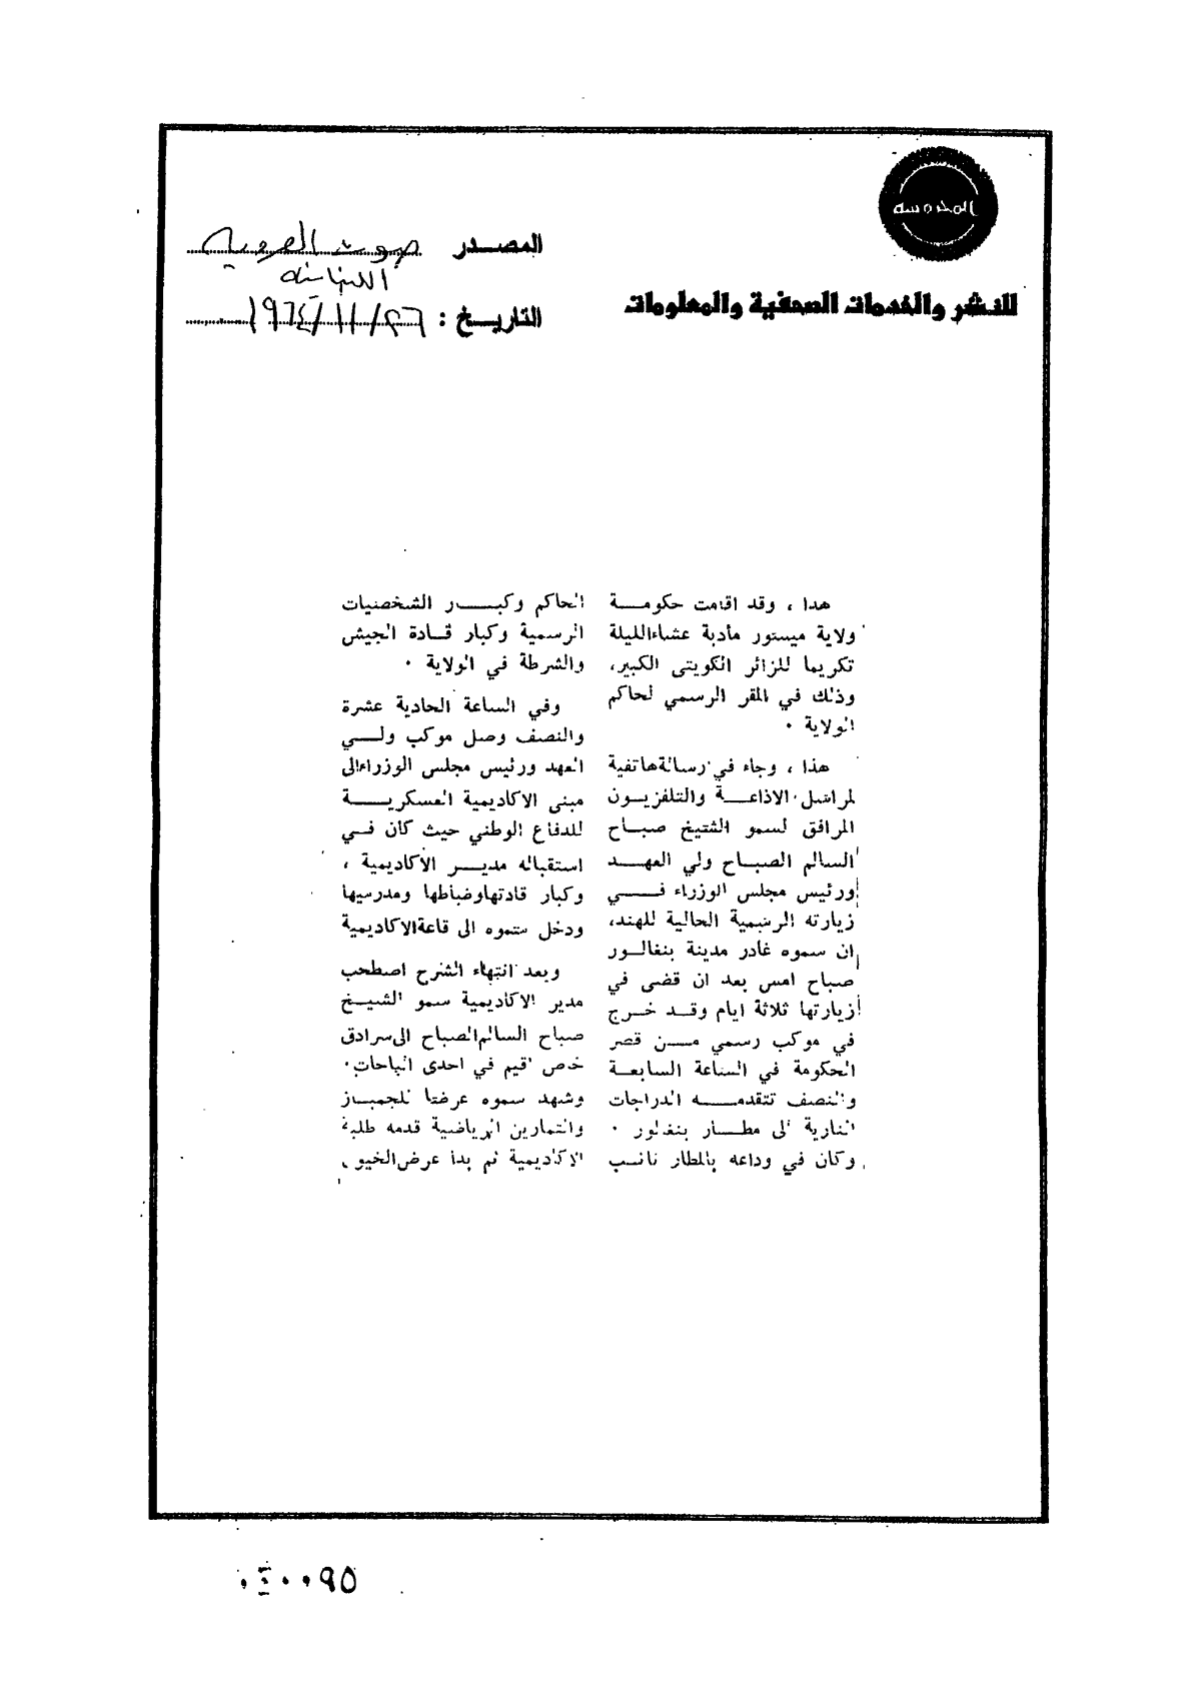 المحروسة
للنشر والخدمات الصحفية والمعلومات
المصدر صوت العروبة
اللبنانية
التاريخ : ٢٦/١١/١٩٦٤
هذا ، وقد اقامت حكومــة
ولاية ميسور مأدبة عشاءالليلة
تكريما للزائر الكويتى الكبير،
وذلك في المقر الرسمي لحاكم
الولاية ٠
هذا ، وجاء في رسالةهاتفية
لمراسل الاذاعــة والتلفزيــون
المرافق لسمو الشيخ صبــاح
السالم الصباح ولي العهــد
ورئيس مجلس الوزراء فــي
زيارته الرسمية الحالية للهند،
ان سموه غادر مدينة بنغالــور
صباح امس بعد ان قضى في
زيارتها ثلاثة ايام وقــد خــرج
في موكب رسمي مــن قصر
الحكومة في الساعة السابعة
والنصف تتقدمــه الدراجات
النارية الى مطــار بنغلور ٠
وكان في وداعه بالمطار نائــب
الحاكم وكبــار الشخصيات
الرسمية وكبار قــادة الجيش
والشرطة في الولاية ٠
وفي الساعة الحادية عشرة
والنصف وصل موكب ولــي
العهد ورئيس مجلس الوزراءالى
مبنى الاكاديمية العسكريــة
للدفاع الوطني حيث كان فــي
استقباله مديــر الاكاديمية ،
وكبار قادتهاوضباطها ومدرسيها
ودخل سموه الى قاعةالاكاديمية
وبعد انتهاء الشرح اصطحب
مدير الاكاديمية سمو الشيــخ
صباح السالم الصباح الى سرادق
خاص اقيم في احدى الباحات٠
وشهد سموه عرضا للجمبــاز
والتمارين الرياضية قدمه طلبة
الاكاديمية ثم بدأ عرض الخيول
٠٤٠٠٩٥